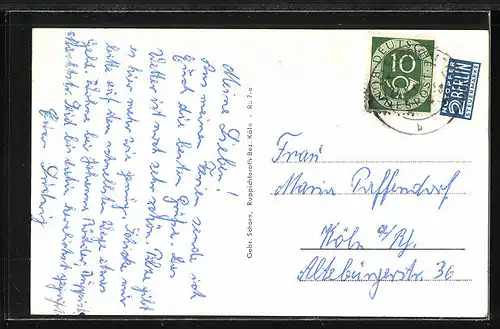 Meine Lieben!
Aus meinen Ferien sende ich
Euch die besten Grüße. Das
Wetter ist noch sehr schön. Aber gibt
es hier mehr wie genug. Schicke mir
bitte auf dem schnellsten Wege etwas
Geld.
Nächster Zeit bin
Euer Ludwig
Gebr. Schorn, Ruppichteroth Bez. Köln - Ru 7 a
DEUTSCHE BUNDESPOST
10
NOTOPFER
2 BERLIN
STEUERMARKE
b
Frau
Maria Paffendorf
Köln a/Rh.
Altebürgerstr. 36